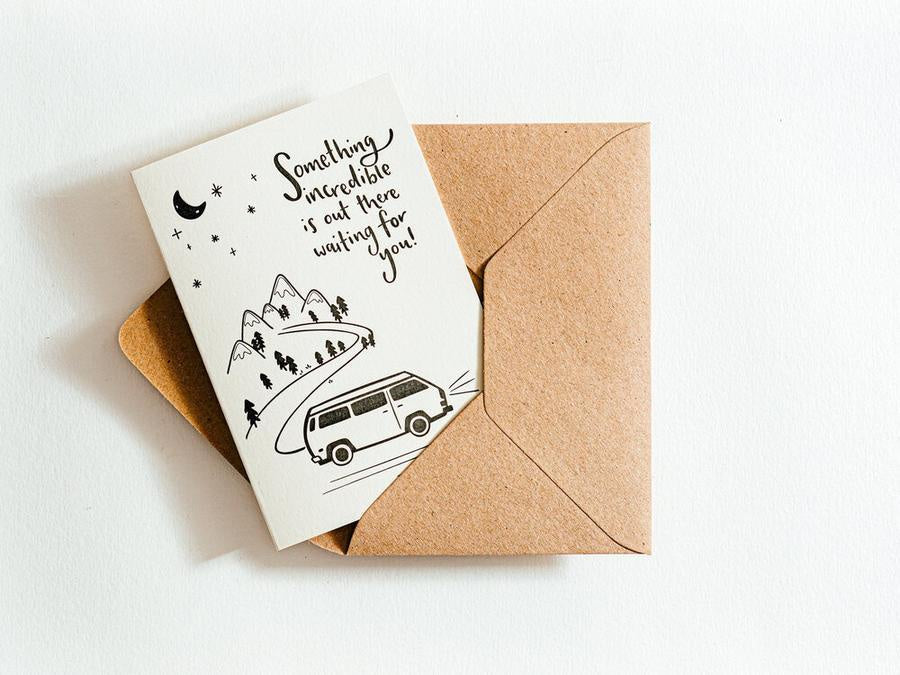 Something
incredible
is out there
waiting for
you!